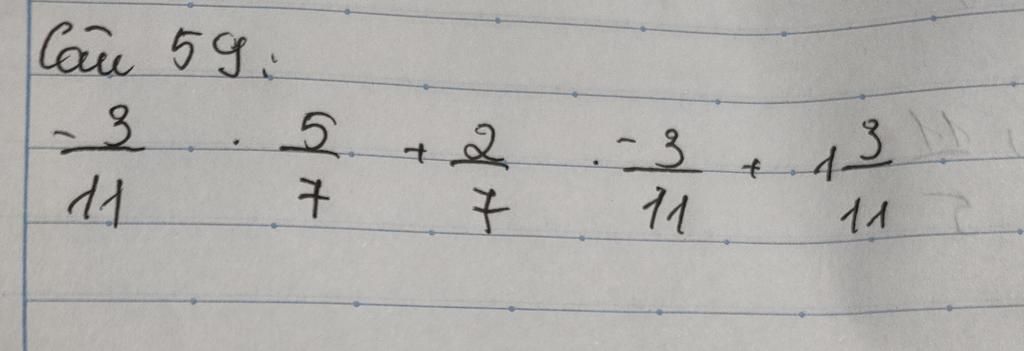 Câu 59:
-3/11 . 5/7 + 2/7 . -3/11 + 1 3/11